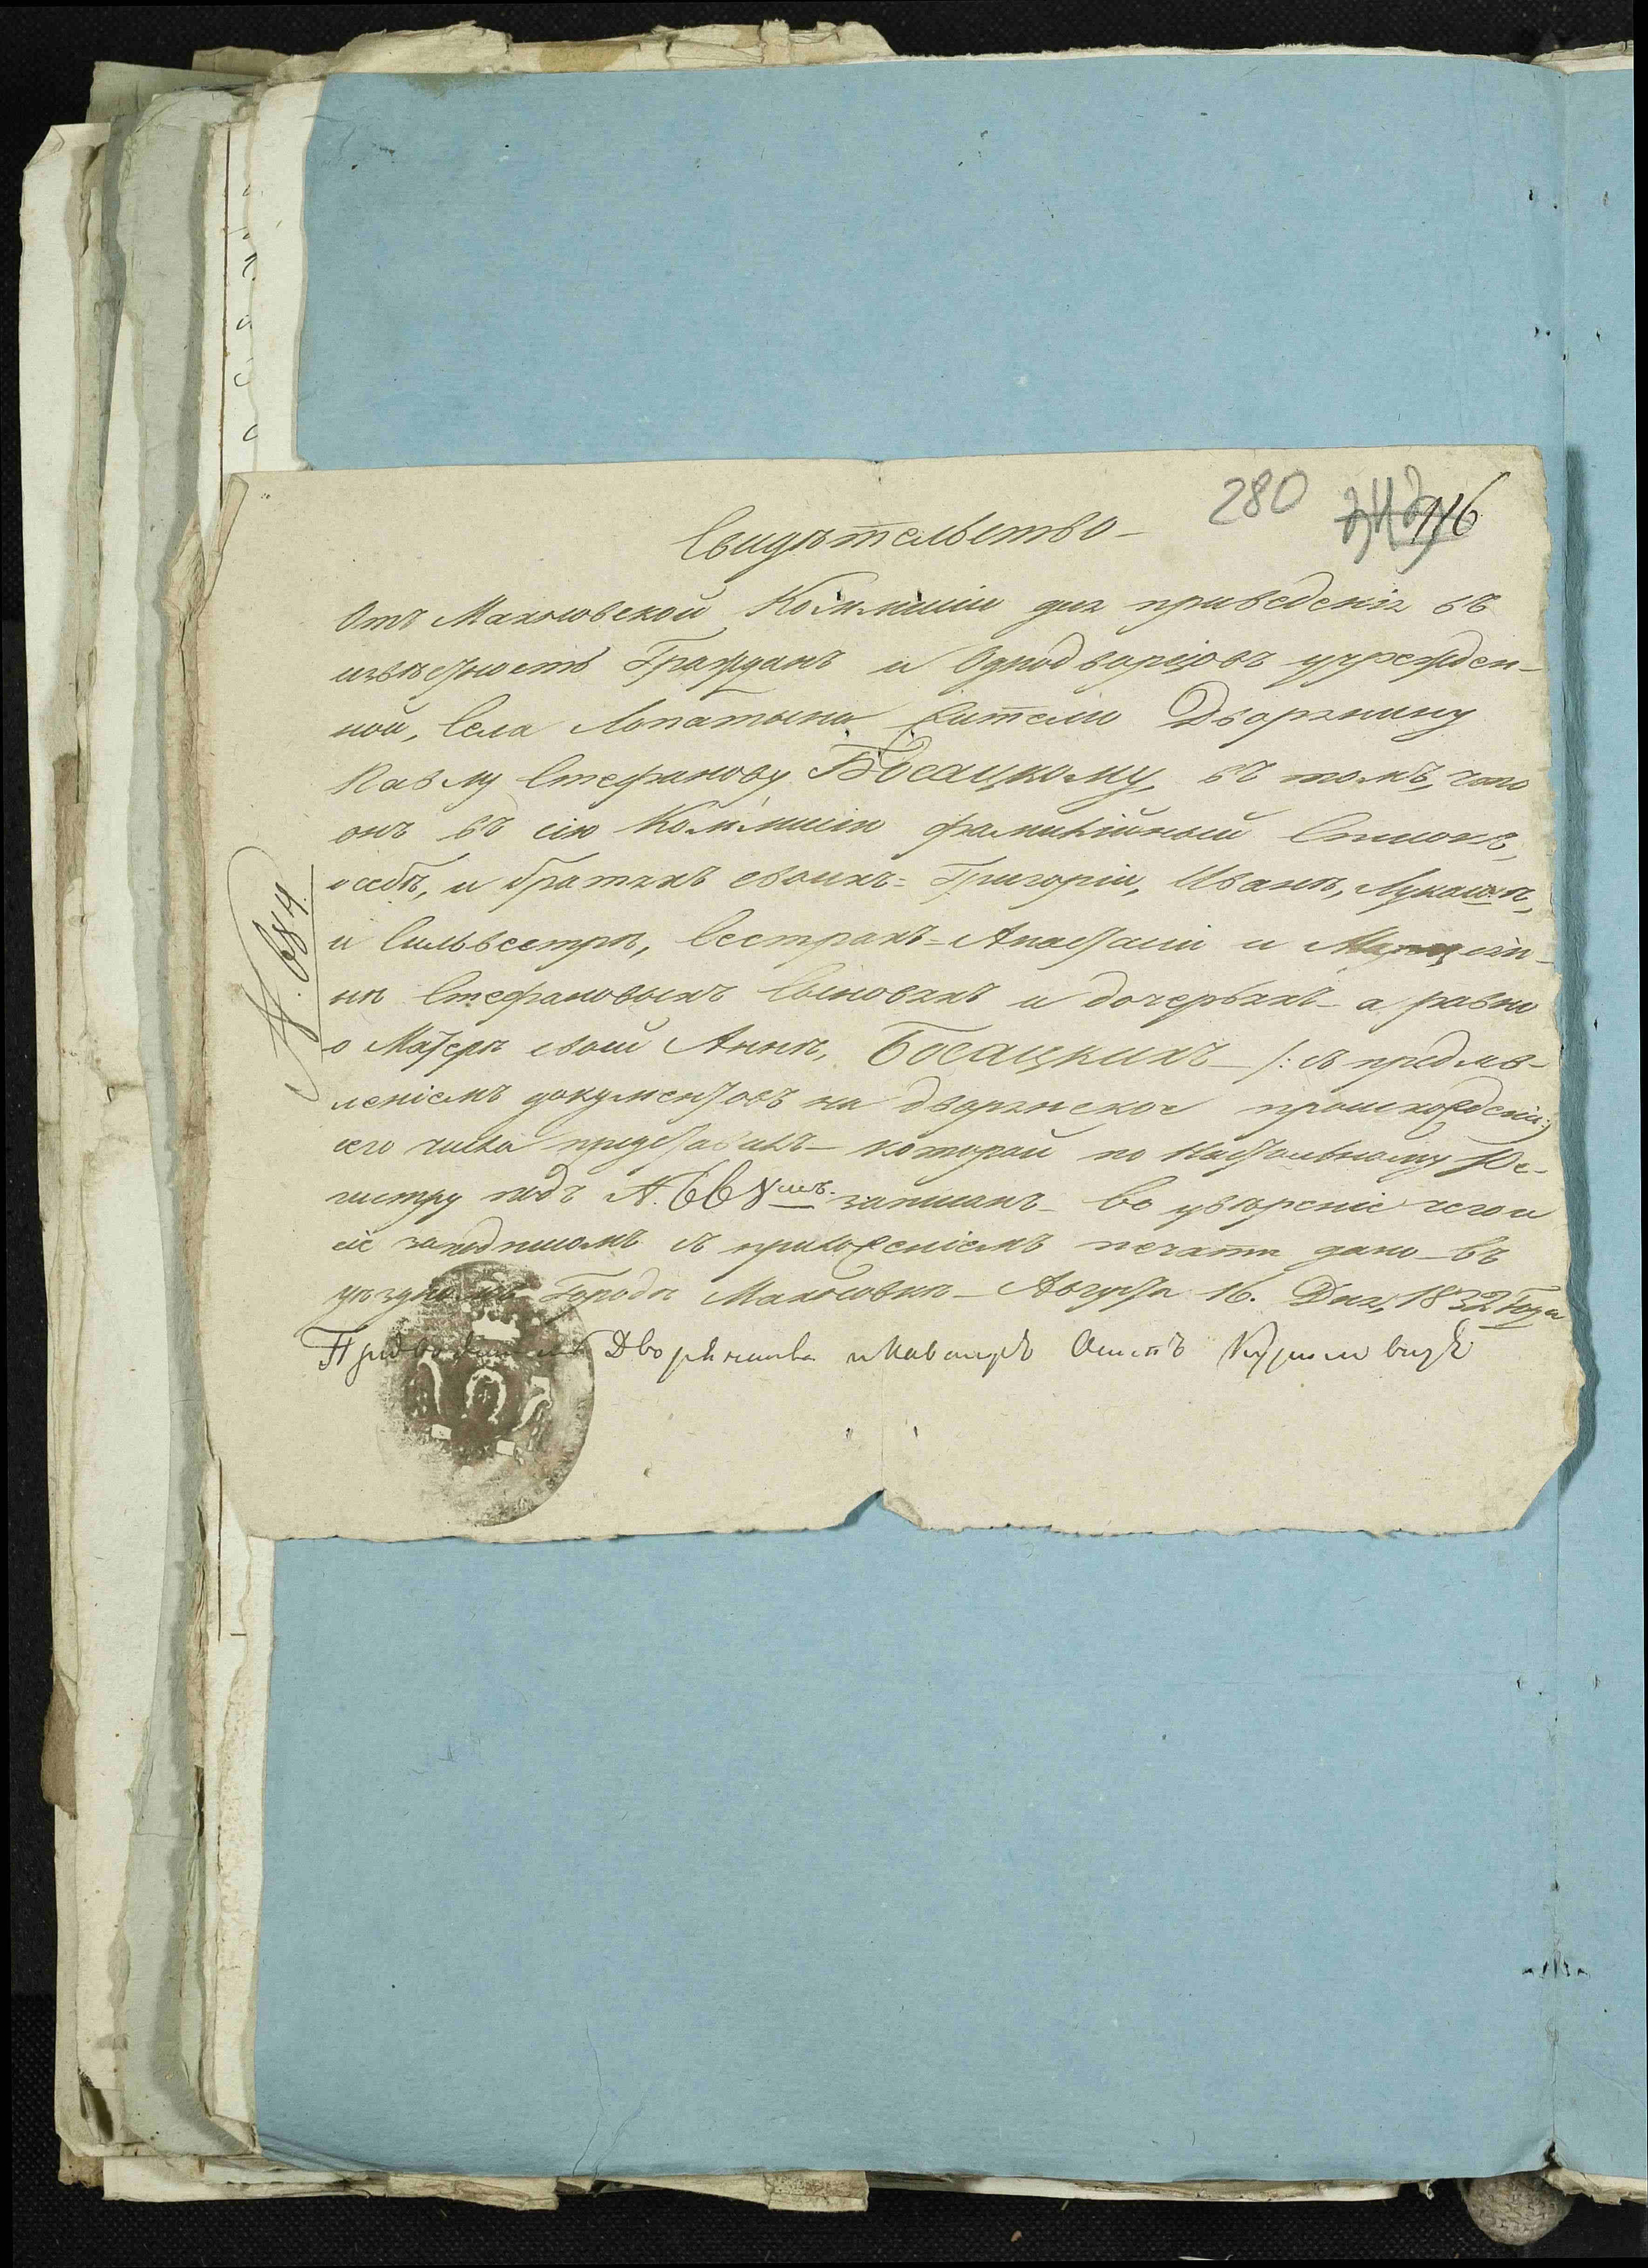 280
116
Свидѣтельство-
Отъ Махновской Коммисіи для приведенія въ
извѣстность Гражданъ и Однодворцовъ учрежден-
ной, Села Лопатына жителю Дворянину
Павлу Стефанову Босацкому, въ томъ, что
онъ въ сію Коммисію фамилійный Списокъ,
о себѣ, и братяхъ своихъ= Григоріи, Иванѣ, Лукашѣ,
и Сильвестрѣ, Сестрахъ-Анастасіи и
нѣ Стефановыхъ Сыновяхъ и дочеряхъ- а равно
о Матерѣ своей Аннѣ, Босацкихъ- /: съ предъяв-
леніемъ документовъ на дворянское происхожденіе:/
сего числа представилъ- которой по Настольному Ре-
гистру подъ N. запиcанъ- во увѣреніе чего и
сіе за подписомъ съ приложеніемъ печати дано- въ
уѣздномъ Городѣ Махновкѣ- Августа 16. Дня, 1832 Года
Предводитель Дворянства и Кавалеръ Осипъ